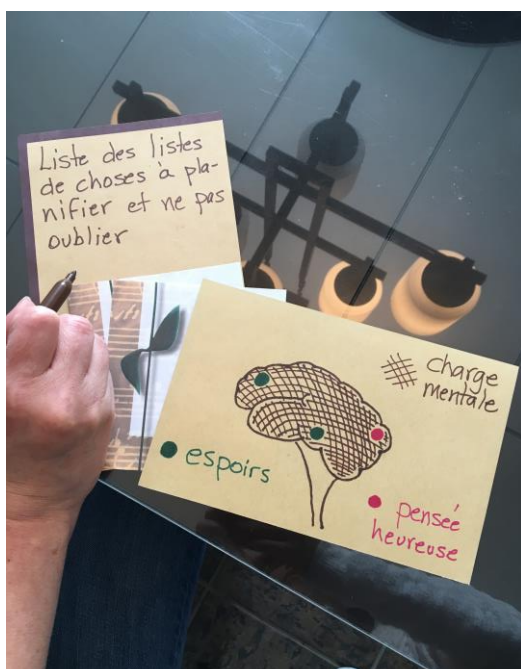 Liste des listes
de choses à pla-
nifier et ne pas
oublier
charge
mentale
espoirs
pensée
heureuse